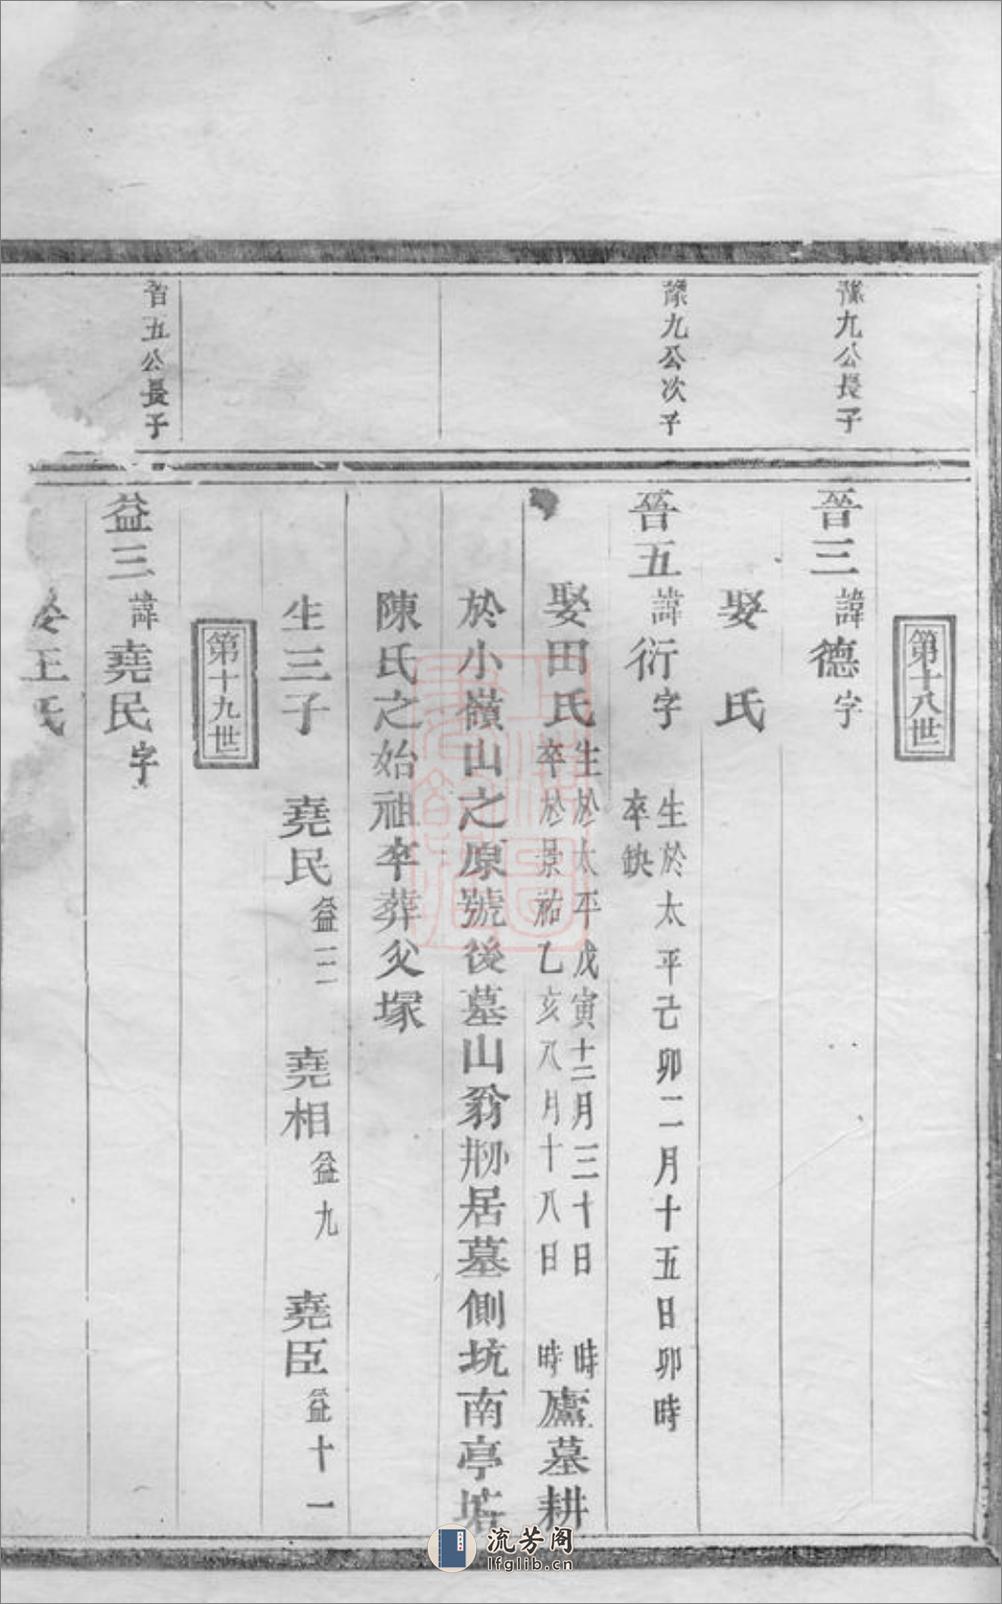 第十八世
豫九公長子
晉三諱德字
娶　氏
豫九公次子
晉五諱衍字　生於太平己卯二月十五日卯時
卒缺
娶田氏　生於太平戊寅十二月三十日　時
卒於景祐乙亥八月十八日　時
廬墓耕
於小嶺山之原號後墓山翁刱居墓側坑南亭塝
陳氏之始祖卒葬父塚
生三子　堯民益三　堯相益九　堯臣益十一
第十九世
晉五公長子
益三諱堯民字
王氏
流芳阁
lfglib.cn